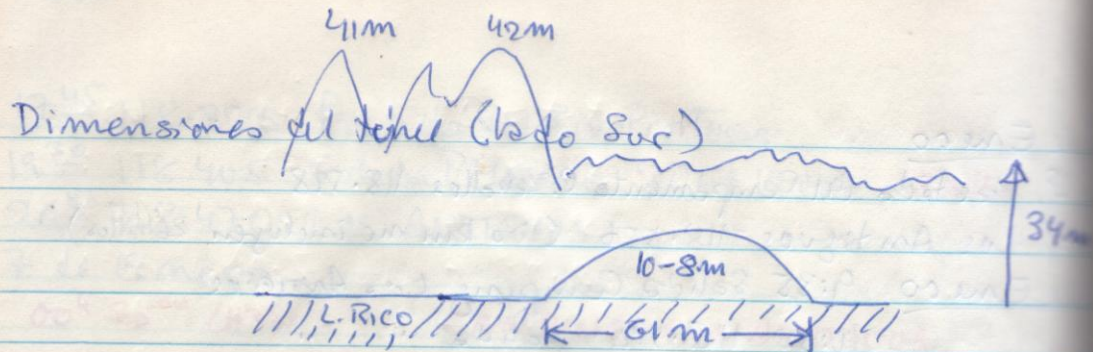 41m 42m
Dimensiones del túnel (lado Sur)
34m
10-8m
L. RICO
61m